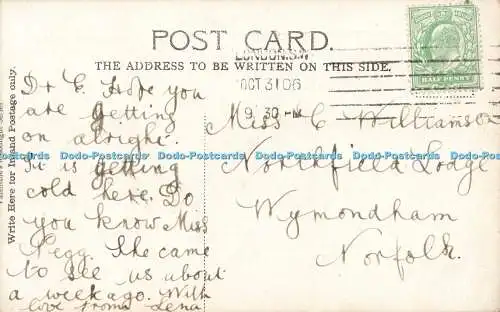 POST CARD.
THE ADDRESS TO BE WRITTEN ON THIS SIDE.
Write Here for Inland Postage only.
LONDON.S.W
OCT 31 06
9.30
HALF PENNY
Dr E. Hope you
are getting
on alright.
It is getting
cold here. Do
you know Miss
Pegg. She came
to see us about
a week ago. With
love from Lena
Miss C Williamson
Northfield Lodge
Wymondham
Norfolk.
Dodo-Postcards Dodo-Postcards Dodo-Postcards Dodo-Postcards
Dodo-Postcards Dodo-Postcards Dodo-Postcards Dodo-Postcards